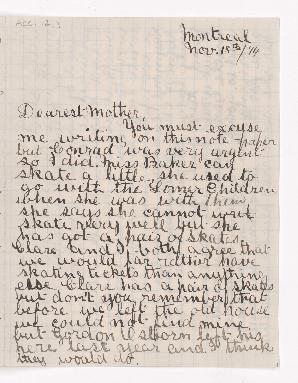 ACC. 12
Montreal
Nov. 18th/14
Dearest Mother,
You must excuse
me writing on this note paper
but Conrad was very urgent
so I did. Miss Baker can
skate a little, she used to
go with the Comer Children
when she was with them,
she says she cannot
skate very well but she
has got a pair of skates
Clare and I both agree that
we would far rather have
skating tickets than anything
else Clare has a pair of skates
but don't you remember that
before we left the old house
we could not find mine
but Gordon Osborn left his
here last year and I think
they would do.